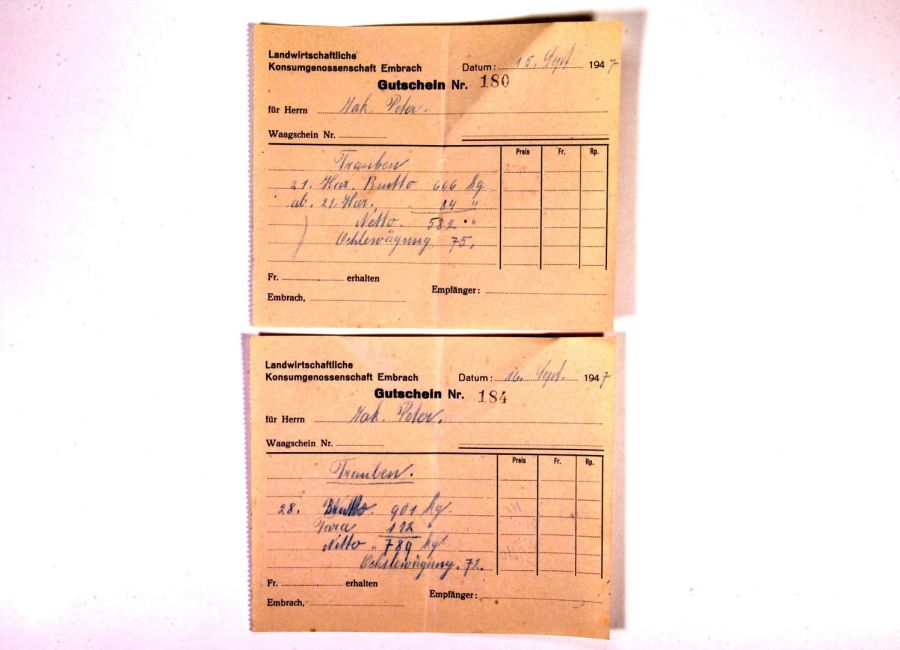 Landwirtschaftliche
Konsumgenossenschaft Embrach Datum: 15. Sept. 1947
Gutschein Nr. 180
für Herrn Hak. Peter.
Waagschein Nr.
Preis Fr. Rp.
Trauben
21. Har. Brutto 666 Kg
ab. 21. Har. 84 "
Netto. 582 "
Öchslewägung 75.
Fr. erhalten
Empfänger:
Embrach,
Landwirtschaftliche
Konsumgenossenschaft Embrach Datum: 16. Sept. 1947
Gutschein Nr. 184
für Herrn Hak. Peter.
Waagschein Nr.
Preis Fr. Rp.
Trauben.
28. Brutto 901 Kg.
Tara 112 "
Netto " 789 Kg
Öchslewägung. 72.
Fr. erhalten
Empfänger:
Embrach,